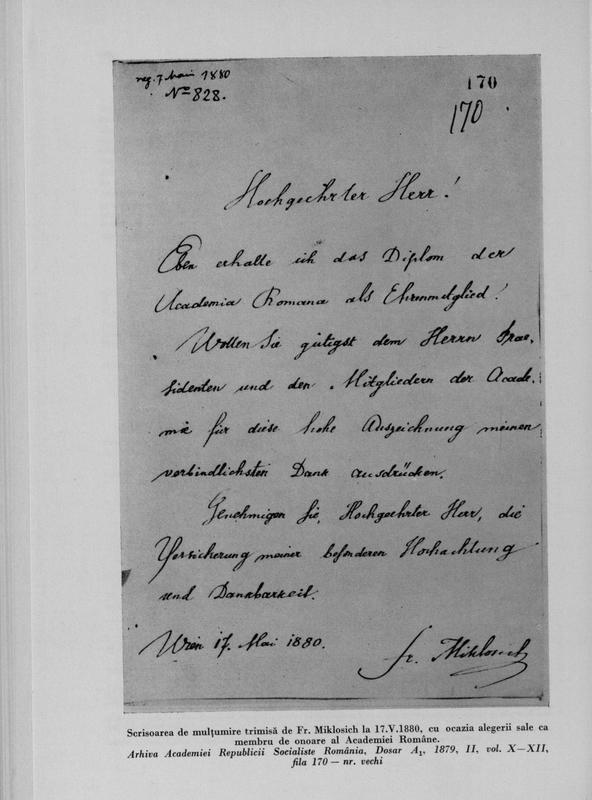 reg. 7 Mai 1880
No 828.
170
170
Hochgeehrter Herr!
Eben erhalte ich das Diplom der
Academia Romana als Ehrenmitglied!
Wollen Sie gütigst dem Herrn Prae,
sidenten und den Mitgliedern der Acade,
mie für diese hohe Auszeichnung meinen
verbindlichsten Dank ausdrücken.
Genehmigen Sie, Hochgeehrter Herr, die
Versicherung meiner besonderen Hochachtung
und Dankbarkeit.
Wien 17. Mai 1880.
Fr. Miklosich
Scrisoarea de mulțumire trimisă de Fr. Miklosich la 17.V.1880, cu ocazia alegerii sale ca
membru de onoare al Academiei Române.
Arhiva Academiei Republicii Socialiste România, Dosar A₁, 1879, II, vol. X—XII,
fila 170 — nr. vechi